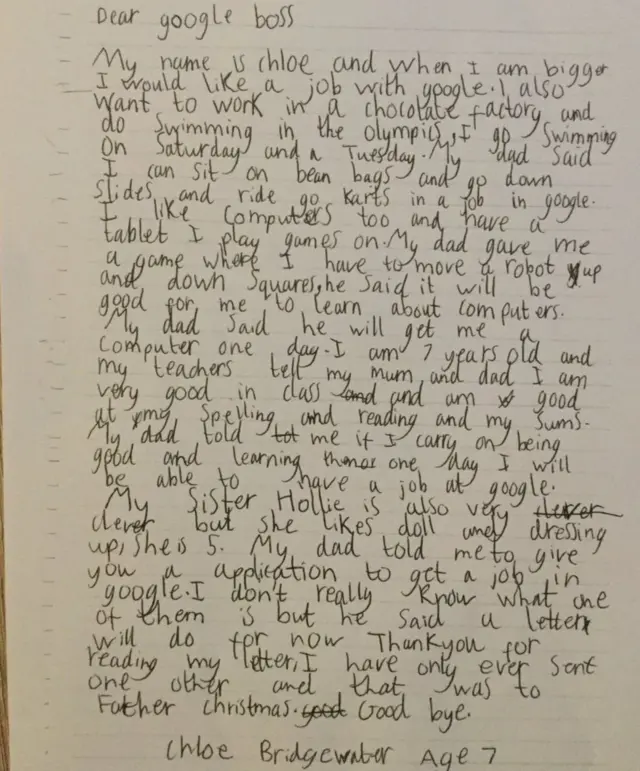 Dear google boss
My name is chloe and when I am bigger
I would like a job with google. I also
want to work in a chocolate factory and
do swimming in the olympics, I go swimming
on Saturday and a Tuesday. My dad said
I can sit on bean bags and go down
slides and ride go karts in a job in google.
I like computers too and have a
tablet I play games on. My dad gave me
a game where I have to move a robot up
and down squares, he said it will be
good for me to learn about computers.
My dad said he will get me a
computer one day. I am 7 years old and
my teachers tell my mum and dad I am
very good in class and and am good
at my spelling and reading and my sums.
My dad told tot me if I carry on being
good and learning one day I will
be able to have a job at google.
My sister Hollie is also very clever
clever but she likes doll and dressing
up, she is 5. My dad told me to give
you a application to get a job in
google. I don't really know what one
of them is but he said a letter
will do for now Thankyou for
reading my letter, I have only ever sent
one other and that was to
Father christmas. good Good bye.
Chloe Bridgewater Age 7